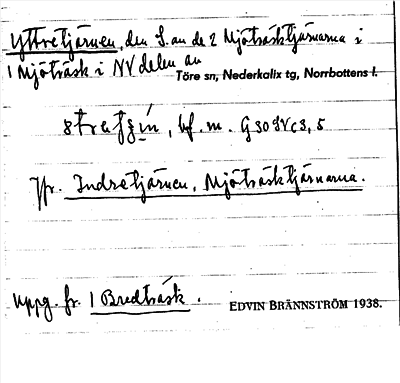 Yttretjärnen, den S. av de 2 Mjöträsktjärnarna i
1 Mjöträsk i NV delen av
Töre sn, Nederkalix tg, Norrbottens l.
bf. m. G30SVc3,5
Jfr. Indretjärnen, Mjöträsktjärnarna.
Uppg. fr. 1 Bredträsk.
EDVIN BRÄNNSTRÖM 1938.